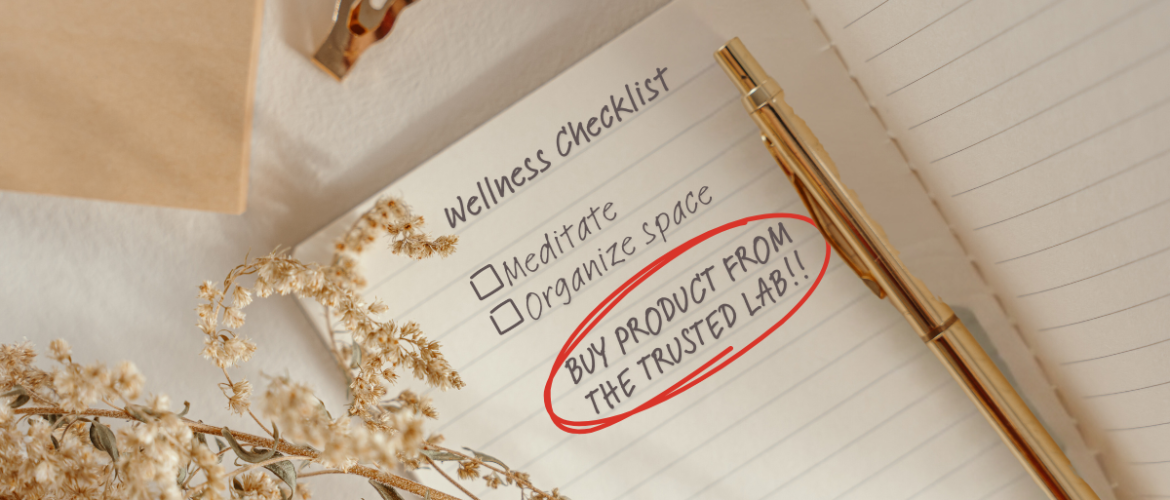 Wellness Checklist
Meditate
Organize space
BUY PRODUCT FROM
THE TRUSTED LAB!!